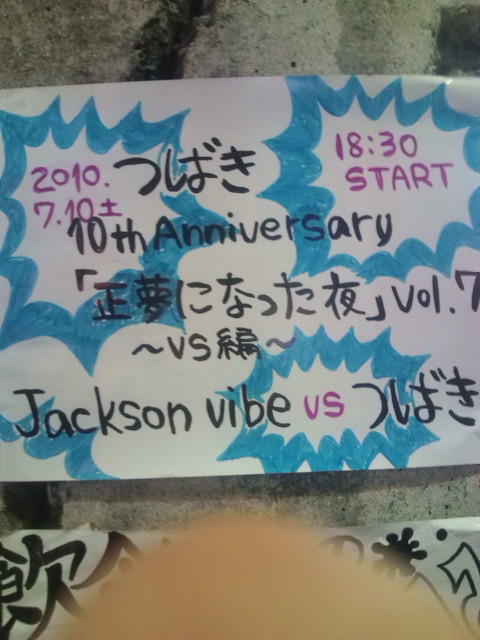 2010.
7.10土
つしばき
18:30
START
10th Anniversary
「正夢になった夜」vol.7
～VS編～
Jackson vibe VS つしばき
飲